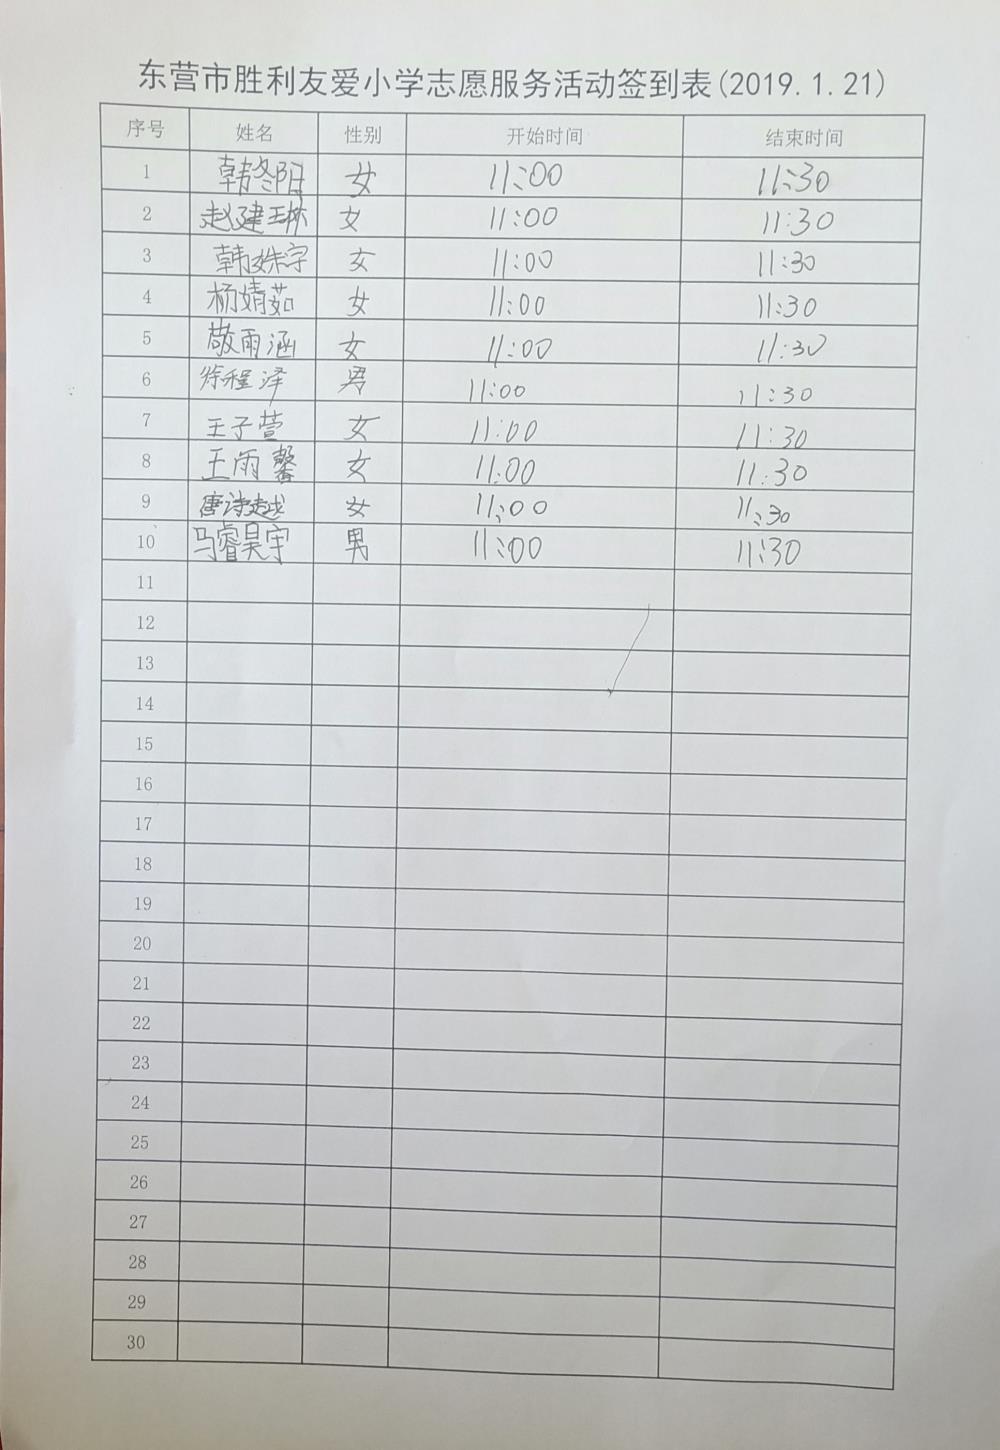 东营市胜利友爱小学志愿服务活动签到表(2019.1.21)
序号 姓名 性别 开始时间 结束时间
1 韩冬阳 女 11:00 11:30
2 赵建琳 女 11:00 11:30
3 韩姝宇 女 11:00 11:30
4 杨婧茹 女 11:00 11:30
5 敬雨涵 女 11:00 11:30
6 徐程泽 男 11:00 11:30
7 王子萱 女 11:00 11:30
8 王雨馨 女 11:00 11:30
9 唐诗越 女 11:00 11:30
10 马睿昊宇 男 11:00 11:30
11
12
13
14
15
16
17
18
19
20
21
22
23
24
25
26
27
28
29
30